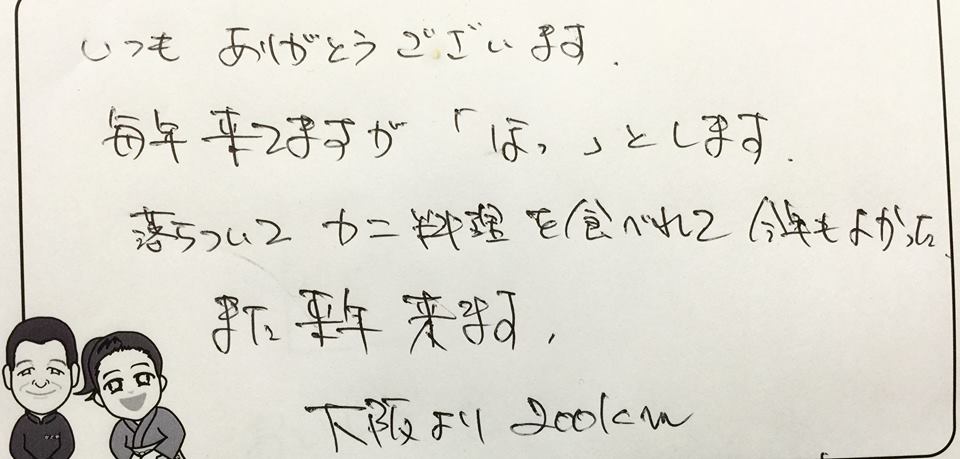 いつも ありがとうございます.
毎年 来てますが 「ほっ」とします.
落ちついて カニ料理を食べれて 今年もよかった
また 来年 来ます.
大阪より 200km